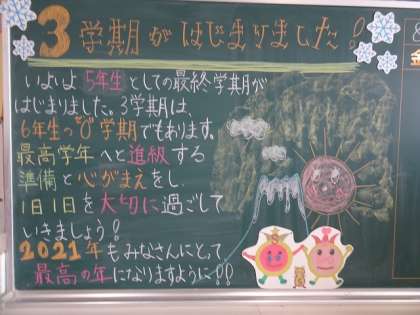 3学期がはじまりました!
いよいよ5年生としての最終学期が
はじまりました。3学期は、
6年生の"0"学期でもあります。
最高学年へと進級する
準備と心がまえをし、
1日1日を大切に過ごして
いきましょう!
2021年もみなさんにとって
最高の年になりますように!!